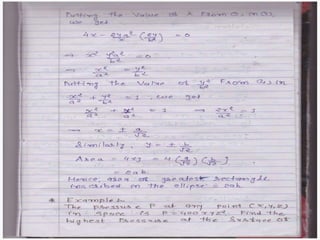 Putting the Value of λ From (1) in (2),
we get
4x - 2ya²/x (2y/b²) = 0
→ x² y²a²/b² = 0
→ x²/a² = y²/b²
Putting the Value of y²/b² From (3) in
x²/a² + y²/b² = 1, we get
x²/a² + x²/a² = 1 → 2x²/a² = 1
→ x = ± a/√2
Similarly, y = ± b/√2
Area = 4xy = 4 (a/√2) (b/√2)
= 2ab
Hence, area of greatest rectangle
inscribed in the ellipse = 2ab
* Example:
The pressure P at any point (x,y,z)
in space is P = 400xyz². Find the
highest Pressure at the Surface of